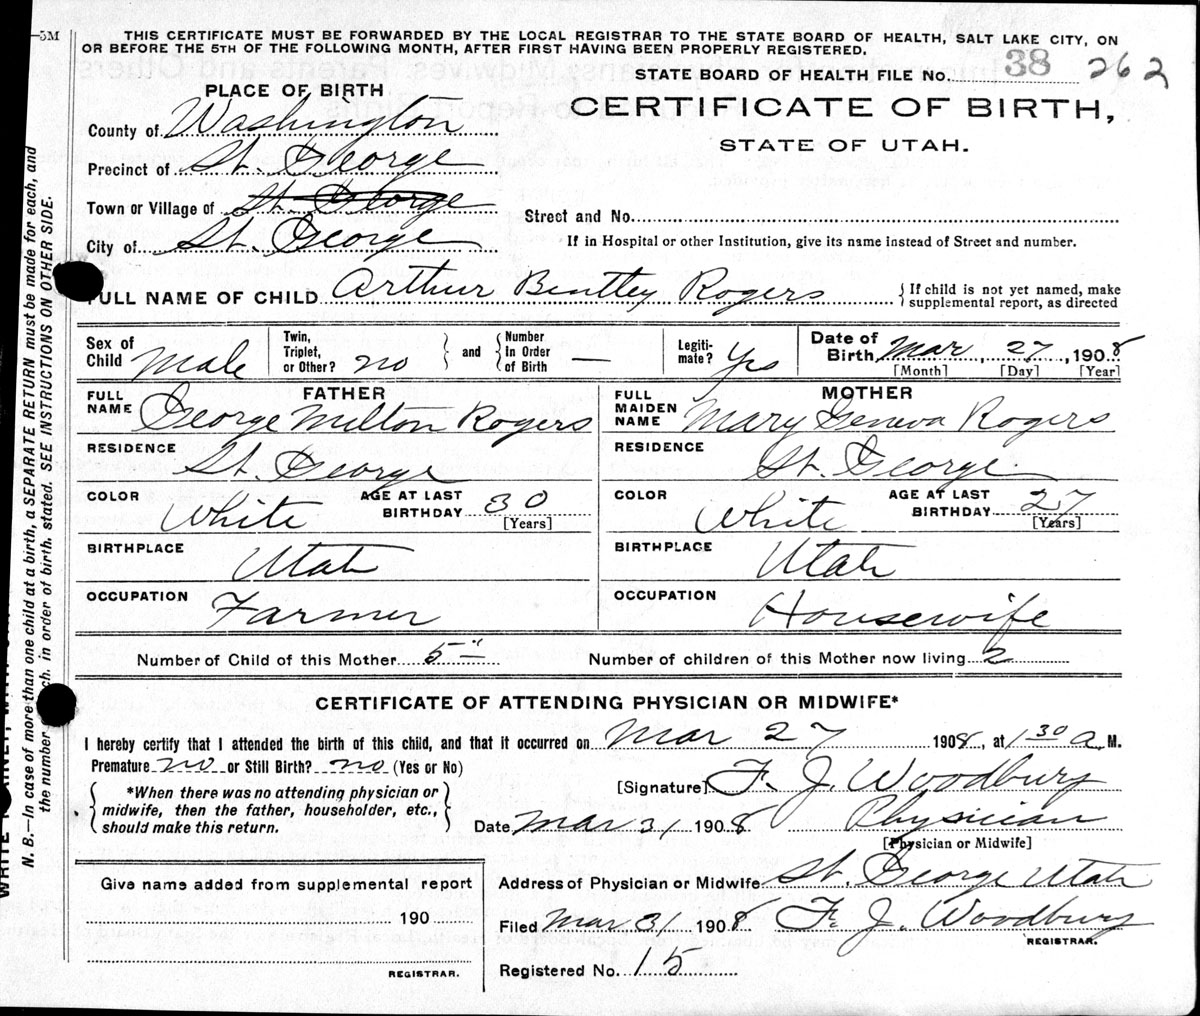 -5M
THIS CERTIFICATE MUST BE FORWARDED BY THE LOCAL REGISTRAR TO THE STATE BOARD OF HEALTH, SALT LAKE CITY, ON
OR BEFORE THE 5TH OF THE FOLLOWING MONTH, AFTER FIRST HAVING BEEN PROPERLY REGISTERED.
STATE BOARD OF HEALTH FILE No. 38 262
PLACE OF BIRTH
CERTIFICATE OF BIRTH,
STATE OF UTAH.
County of Washington
Precinct of St. George
Town or Village of St. George
Street and No.
City of St. George
If in Hospital or other Institution, give its name instead of Street and number.
FULL NAME OF CHILD Arthur Bentley Rogers
If child is not yet named, make
supplemental report, as directed
Sex of Child Male
Twin, Triplet, or Other? no
and
Number In Order of Birth —
Legiti-mate? Yes
Date of Birth Mar, 27, 1908
[Month] [Day] [Year]
FATHER
FULL NAME George Milton Rogers
RESIDENCE St. George
COLOR White
AGE AT LAST BIRTHDAY 30
[Years]
BIRTHPLACE Utah
OCCUPATION Farmer
MOTHER
FULL MAIDEN NAME Mary Geneva Rogers
RESIDENCE St. George.
COLOR White
AGE AT LAST BIRTHDAY 27
[Years]
BIRTHPLACE Utah
OCCUPATION Housewife
Number of Child of this Mother 5
Number of children of this Mother now living 2
CERTIFICATE OF ATTENDING PHYSICIAN OR MIDWIFE*
I hereby certify that I attended the birth of this child, and that it occurred on Mar 27 1908, at 1 30 a M.
Premature no or Still Birth? no (Yes or No)
*When there was no attending physician or
midwife, then the father, householder, etc.,
should make this return.
[Signature] F. J. Woodbury
Date Mar 31 1908 Physician
[Physician or Midwife]
Give name added from supplemental report
190
REGISTRAR.
Address of Physician or Midwife St. George Utah
Filed Mar 31 1908 F. J. Woodbury
REGISTRAR.
Registered No. 15
N. B.—In case of more than one child at a birth, a SEPARATE RETURN must be made for each, and
the number each, in order of birth, stated. SEE INSTRUCTIONS ON OTHER SIDE.